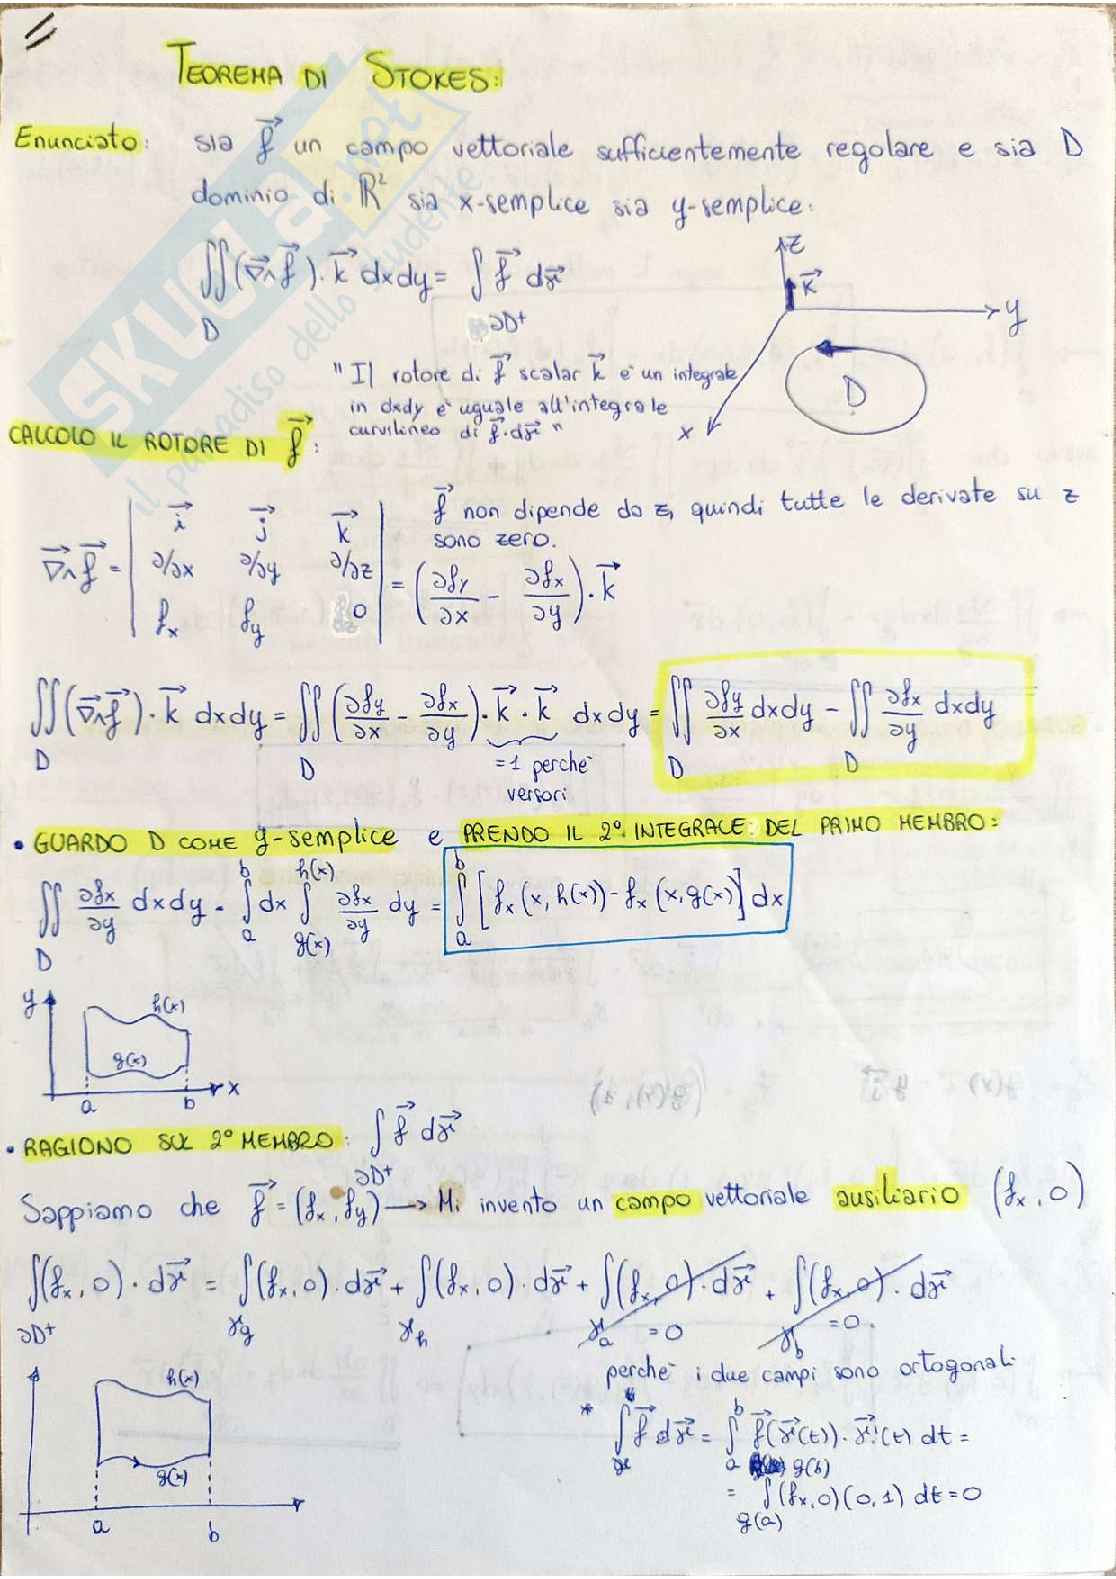 TEOREMA DI STOKES:
Enunciato: sia f⃗ un campo vettoriale sufficientemente regolare e sia D
dominio di ℝ² sia x-semplice sia y-semplice:
∬_D (∇⃗∧f⃗)·k⃗ dxdy = ∫_∂D⁺ f⃗ dγ⃗
z
k⃗
y
x
D
"Il rotore di f⃗ scalar k⃗ e' un integrale
in dxdy e' uguale all'integrale
curvilineo di f⃗·dγ⃗"
CALCOLO IL ROTORE DI f⃗:
f⃗ non dipende da z, quindi tutte le derivate su z
sono zero.
∇⃗∧f⃗ = | i⃗ j⃗ k⃗ |
| ∂/∂x ∂/∂y ∂/∂z |
| fx fy 0 | = (∂fy/∂x - ∂fx/∂y)·k⃗
∬_D (∇⃗∧f⃗)·k⃗ dxdy = ∬_D (∂fy/∂x - ∂fx/∂y)·k⃗·k⃗ dxdy = ∬_D ∂fy/∂x dxdy - ∬_D ∂fx/∂y dxdy
=1 perche'
versori
• GUARDO D COME y-semplice e PRENDO IL 2° INTEGRALE DEL PRIMO MEMBRO:
∬_D ∂fx/∂y dxdy = ∫_a^b dx ∫_g(x)^h(x) ∂fx/∂y dy = ∫_a^b [fx(x,h(x))-fx(x,g(x))] dx
y
h(x)
g(x)
a b x
• RAGIONO SUL 2° MEMBRO: ∫_∂D⁺ f⃗ dγ⃗
Sappiamo che f⃗ = (fx, fy) → Mi invento un campo vettoriale ausiliario (fx, 0)
∫_∂D⁺ (fx, 0)·dγ⃗ = ∫_γg (fx, 0)·dγ⃗ + ∫_γh (fx, 0)·dγ⃗ + ∫_γa (fx, 0)·dγ⃗ + ∫_γb (fx, 0)·dγ⃗
=0 =0
perche' i due campi sono ortogonali
h(x)
g(x)
a b
* ∫_γ f⃗ dγ⃗ = ∫_a^b f⃗(γ⃗(t))·γ⃗'(t) dt =
= ∫_g(a)^g(b) (fx,0)(0,1) dt = 0
SKUOLA.net
il paradiso dello studente